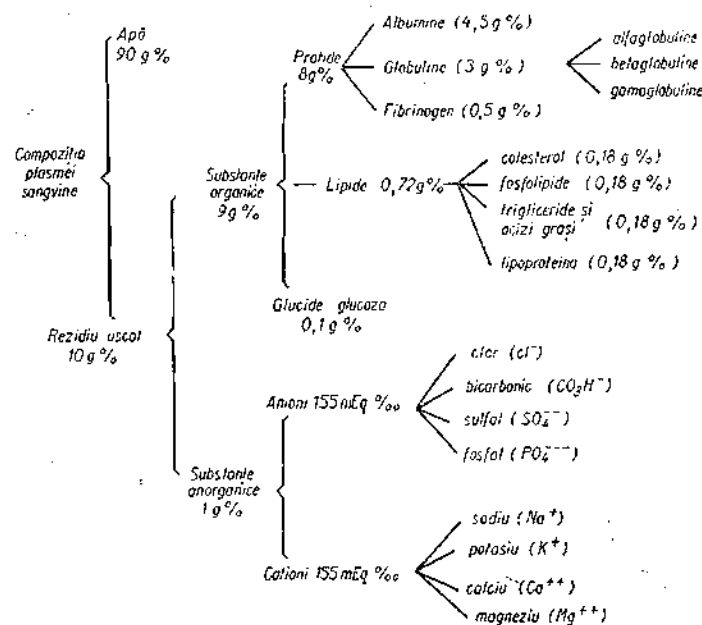 Compoziția
plasmei
sangvine
Apă
90 g %
Rezidiu uscat
10 g %
Substanțe
organice
9 g %
Protide
8g%
Albumine (4,5 g %)
Globuline (3 g %)
alfaglobuline
betaglobuline
gamaglobuline
Fibrinogen (0,5 g %)
Lipide 0,72 g %
colesterol (0,18 g %)
fosfolipide (0,18 g %)
trigliceride și
acizi grași (0,18 g %)
lipoproteina (0,18 g %)
Glucide glucoza
0,1 g %
Substanțe
anorganice
1 g %
Anioni 155 mEq ‰
clor (cl⁻)
bicarbonic (CO₃H⁻)
sulfat (SO₄⁻⁻)
fosfat (PO₄⁻⁻⁻)
Cationi 155 mEq ‰
sodiu (Na⁺)
potasiu (K⁺)
calciu (Ca⁺⁺)
magneziu (Mg⁺⁺)